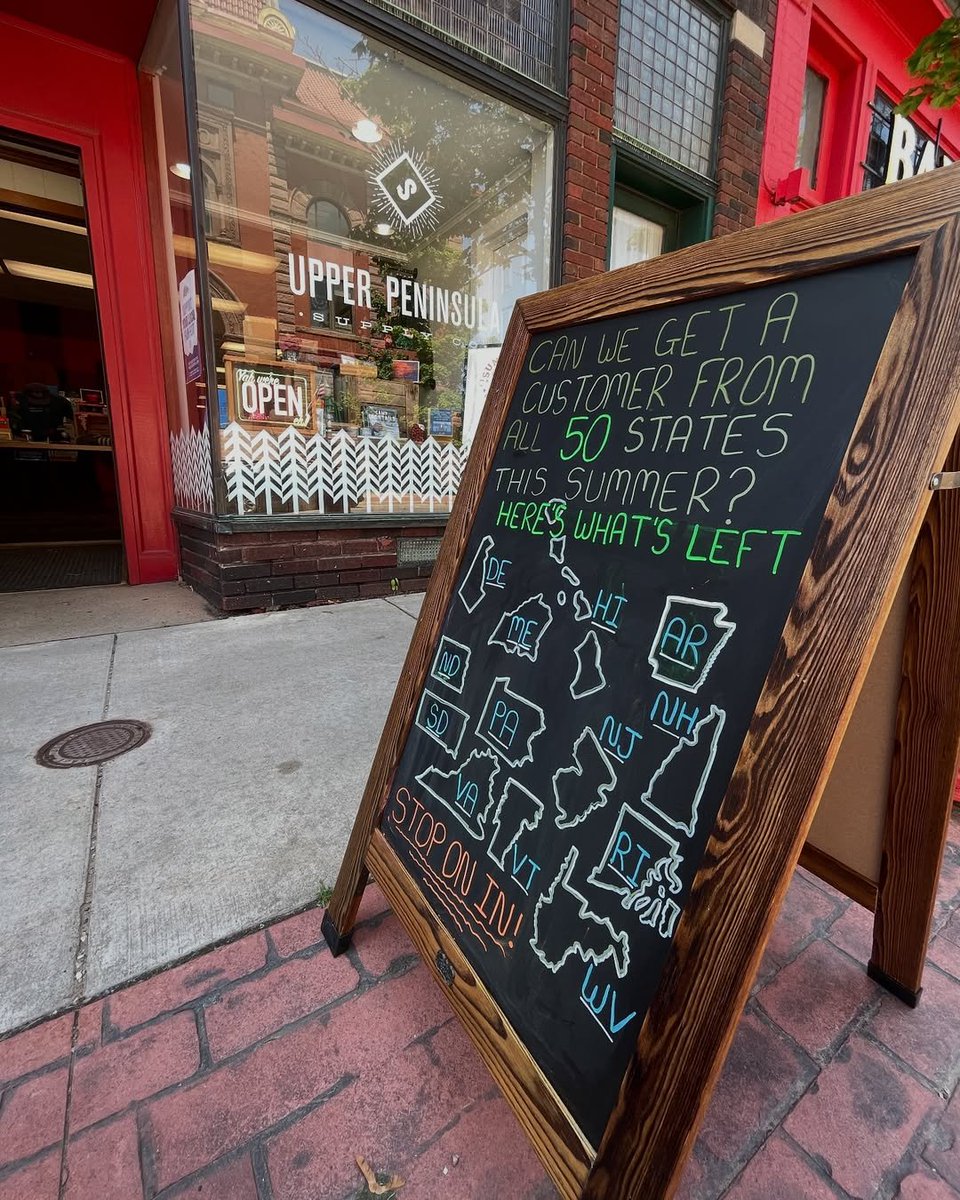 S
UPPER PENINSULA
SUPPLY CO
Yah we're
OPEN
BA
CAN WE GET A
CUSTOMER FROM
ALL 50 STATES
THIS SUMMER?
HERE'S WHAT'S LEFT
DE
HI
ME
AR
ND
NH
SD
PA
NJ
VA
VT
RI
WV
STOP ON IN!